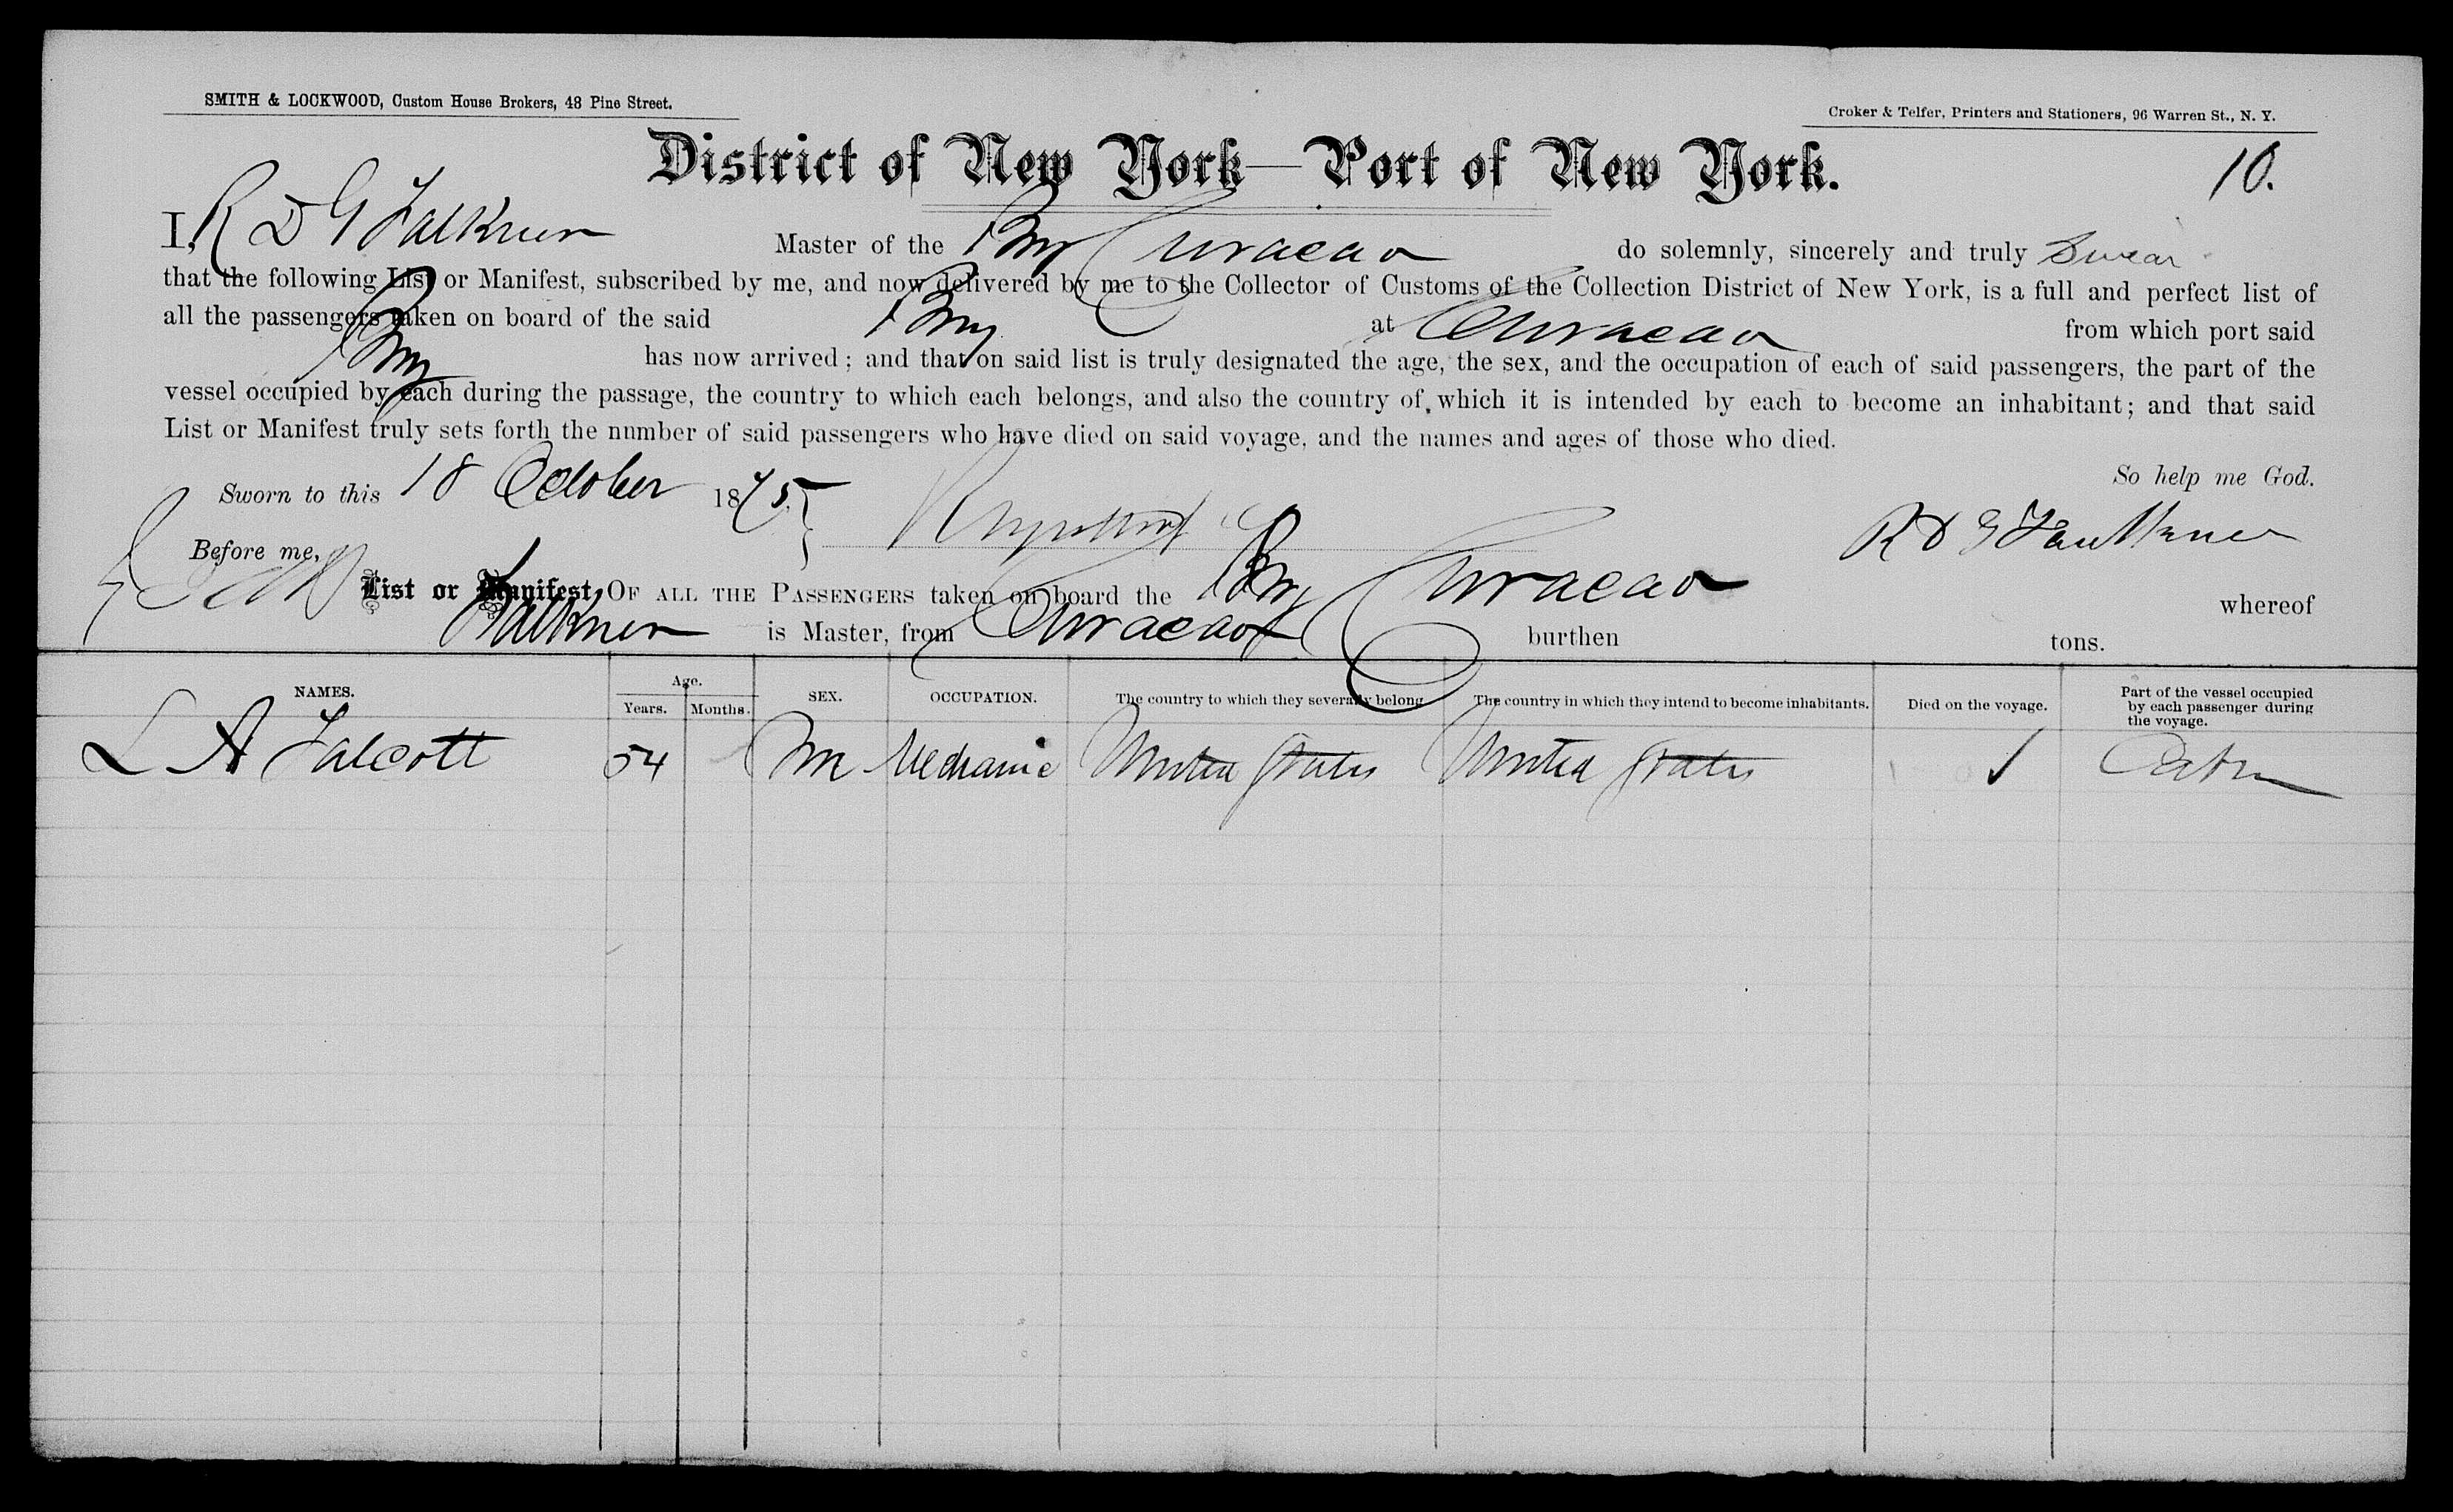 SMITH & LOCKWOOD, Custom House Brokers, 48 Pine Street.
Croker & Telfer, Printers and Stationers, 96 Warren St., N. Y.
District of New York—Port of New York.
10.
I, R D G Falkner Master of the Brig Curacao do solemnly, sincerely and truly swear
that the following List or Manifest, subscribed by me, and now delivered by me to the Collector of Customs of the Collection District of New York, is a full and perfect list of
all the passengers taken on board of the said Brig at Curacao from which port said
Brig has now arrived; and that on said list is truly designated the age, the sex, and the occupation of each of said passengers, the part of the
vessel occupied by each during the passage, the country to which each belongs, and also the country of which it is intended by each to become an inhabitant; and that said
List or Manifest truly sets forth the number of said passengers who have died on said voyage, and the names and ages of those who died.
So help me God.
Sworn to this 18 October 1875.
R D G Faulkner
Before me,
List or Manifest, OF ALL THE PASSENGERS taken on board the Brig Curacao whereof
Falkner is Master, from Curacao burthen tons.
NAMES. Age. Years. Months. SEX. OCCUPATION. The country to which they severally belong The country in which they intend to become inhabitants. Died on the voyage. Part of the vessel occupied by each passenger during the voyage.
L A Talcott 54 M Mechanic United States United States Cabin